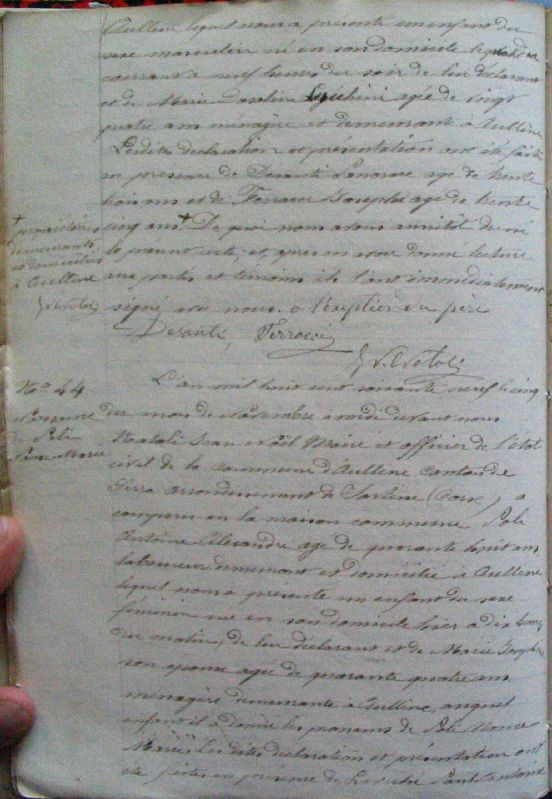 Aullene lequel nous a présenté un enfant du
sexe masculin né en son domicile le
courant à neuf heures du soir de lui déclarant
et de Marie Dorotine Lucchini agée de vingt
quatre ans ménagère et demeurante à Aullène
Lesdites declaration et presentation ont été faites
en presence de Desanti agé de trente
trois ans et de Ferracci Joseph agé de trente
cinq ans + De quoi nous avons aussitôt dressé
le présent acte, et, après en avoir donné lecture
aux parties et temoins ils l'ont immédiatement
signé avec nous à l'exception du père
Desanti, Ferracci
+ propriétaires
demeurants
et domiciliés
à Aullène
No 44
Naissance
de Poli
Marie
L'an mil huit cent soixante neuf le cinq
du mois de Novembre à midi devant nous
Natali Jean Noël Maire et officier de l'état
civil de la commune d'Aullene canton de
Serra arrondissement de Sartène (Corse) a
comparu en la maison commune Poli
Antoine Alexandre agé de quarante huit ans
laboureur demeurant et domicilié à Aullène
lequel nous a présenté un enfant du sexe
féminin né en son domicile hier à dix heures
du matin, de lui déclarant et de Marie Josephine
son épouse agée de quarante quatre ans
ménagère demeurante à Aullène, auquel
enfant il a donné les prenoms de Poli
Marie. Les dites déclaration et présentation ont
été faites en présence de